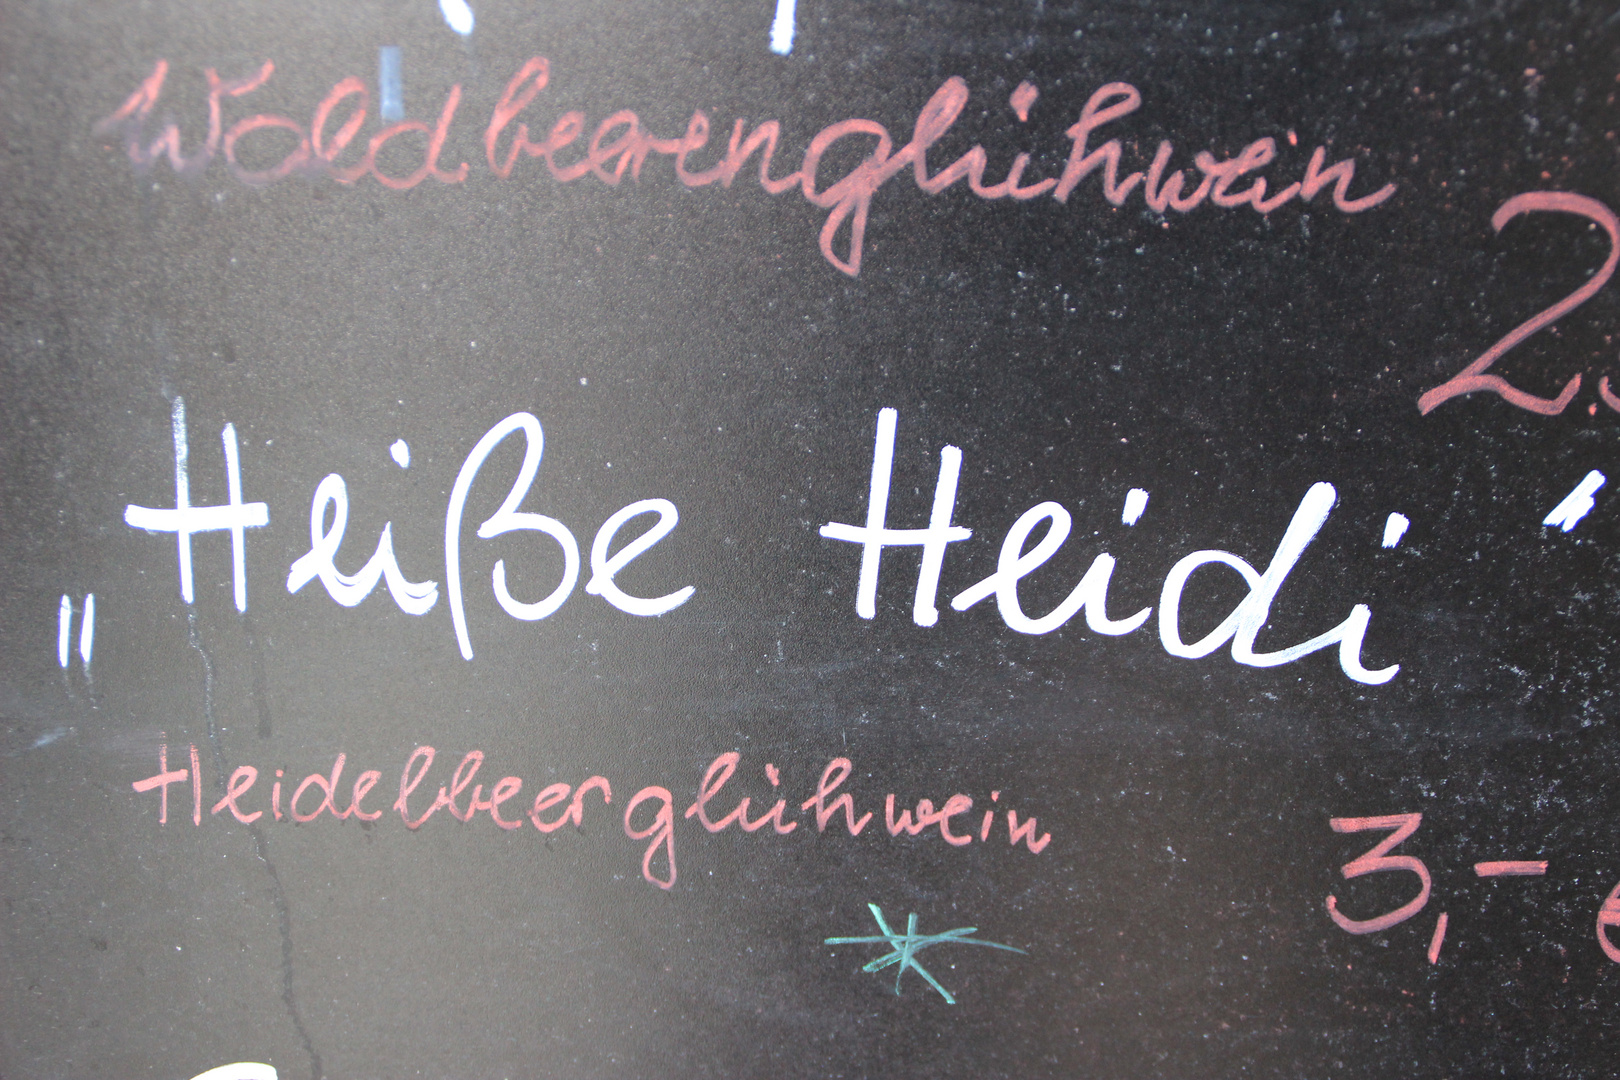 Waldbeerenglühwein
2.
„Heiße Heidi“
Heidelbeerglühwein
3,- €